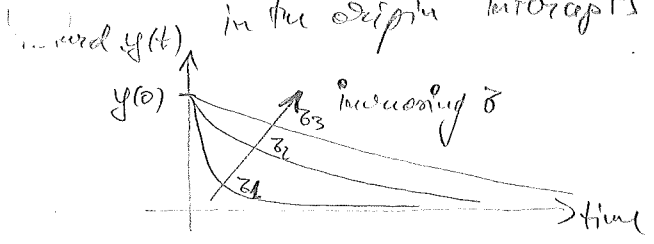 in the origin intercepts
y(t)
y(0)
increasing τ
τ3
τ2
τ1
time